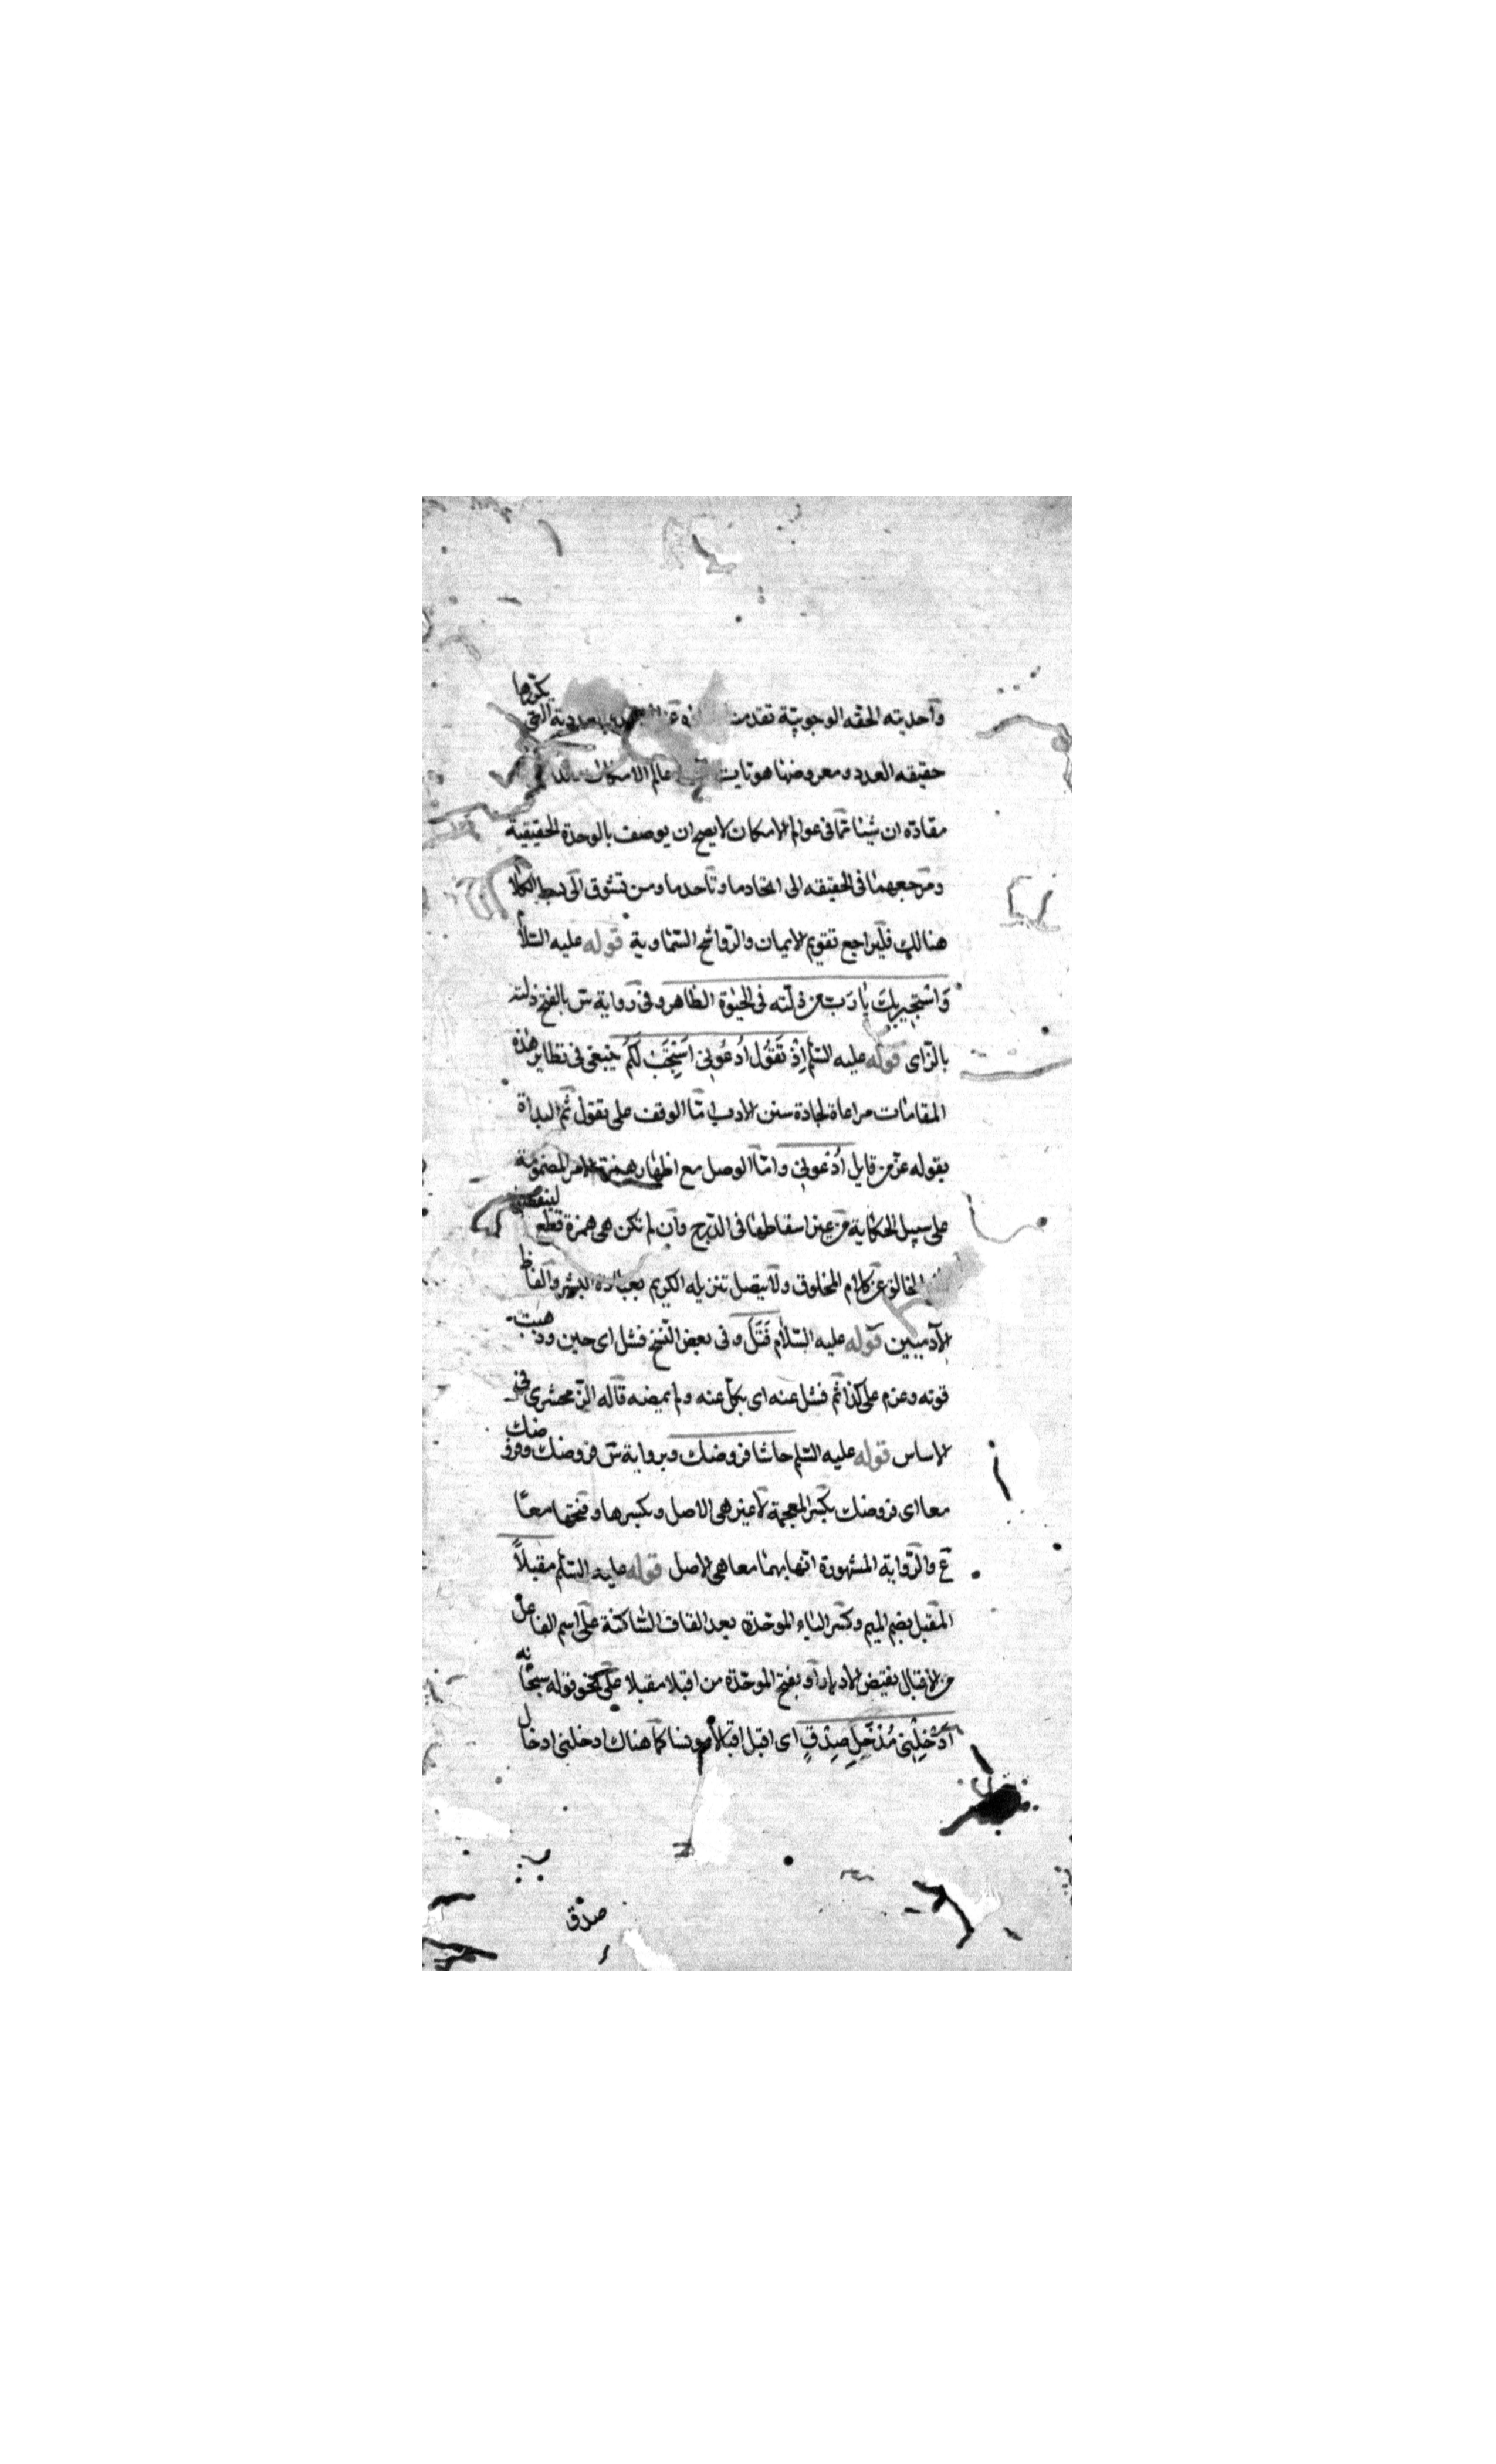 وأحديته الحقه الوجوبية تقدست وعز التي يكررها
حقيقه العدد ومعروضها هويات عالم الامكان
مفاده ان شيئا مما فى عوالم الامكان لا يصح ان يوصف بالوحدة الحقيقية
ومرجعهما فى الحقيقه الى اتحاد ما وتأحد ما ومن تشوق الى بسط الكلام
هنالك فليراجع تقويم الايمان والرواشح السماوية قوله عليه السلام
وَاسْتَجِيرُ بِكَ يا رَبّ من ذلته فى الحيوة الظاهر وفى رواية س بالفتح زلته
بالزاى قوله عليه السلم اِذْ تَقُول اُدْعُونِى اَسْتَجِبْ لَكُم ينبغى فى نظاير هذه
المقامات مراعاة لجادة سنن الادب امّا الوقف على يقول ثم البدأة
بقوله عزّ من قايل اُدْعونى وامّا الوصل مع اظهار همزة الامر المضمومة
على سبيل الحكاية من غير اسقاطها فى الدرج وان لم تكن هى همزة قطع لينفصل
الخالق عن كلام المخلوق ولا يتصل تنزيله الكريم بعبارة البشر والفاظ
الآدميين قوله عليه السّلام فَتَلَ وفى بعض النسخ فشل اى جبن وذهبت
قوته وعزم على كذا ثم فشل عنه اى نكل عنه ولم يمضه قاله الزمخشرى فى
الاساس قوله عليه السلم حاشا فروضك وبرواية س فروضك وفروضك
معا اى فروضك بكسر المعجمة لا غير هى الاصل وبكسرها وفتحها معًا
ع والرّواية المشهورة انها بهما معا هى الاصل قوله عليه السلم مقبلاً
المقبل بضم الميم وكسر الباء الموحّدة بعد القاف الساكنة على اسم الفاعل
من الاقبال نقيض الادبار او بفتح الموحّدة من اقبلا مقبلا على نحو قوله سبحانه
أَدْخِلْنِى مُدْخَلَ صِدْقٍ اى اقبل اقبالا كما هناك ادخلنى ادخال
صدق